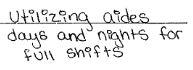 Utilizing aides
days and nights for
full shifts